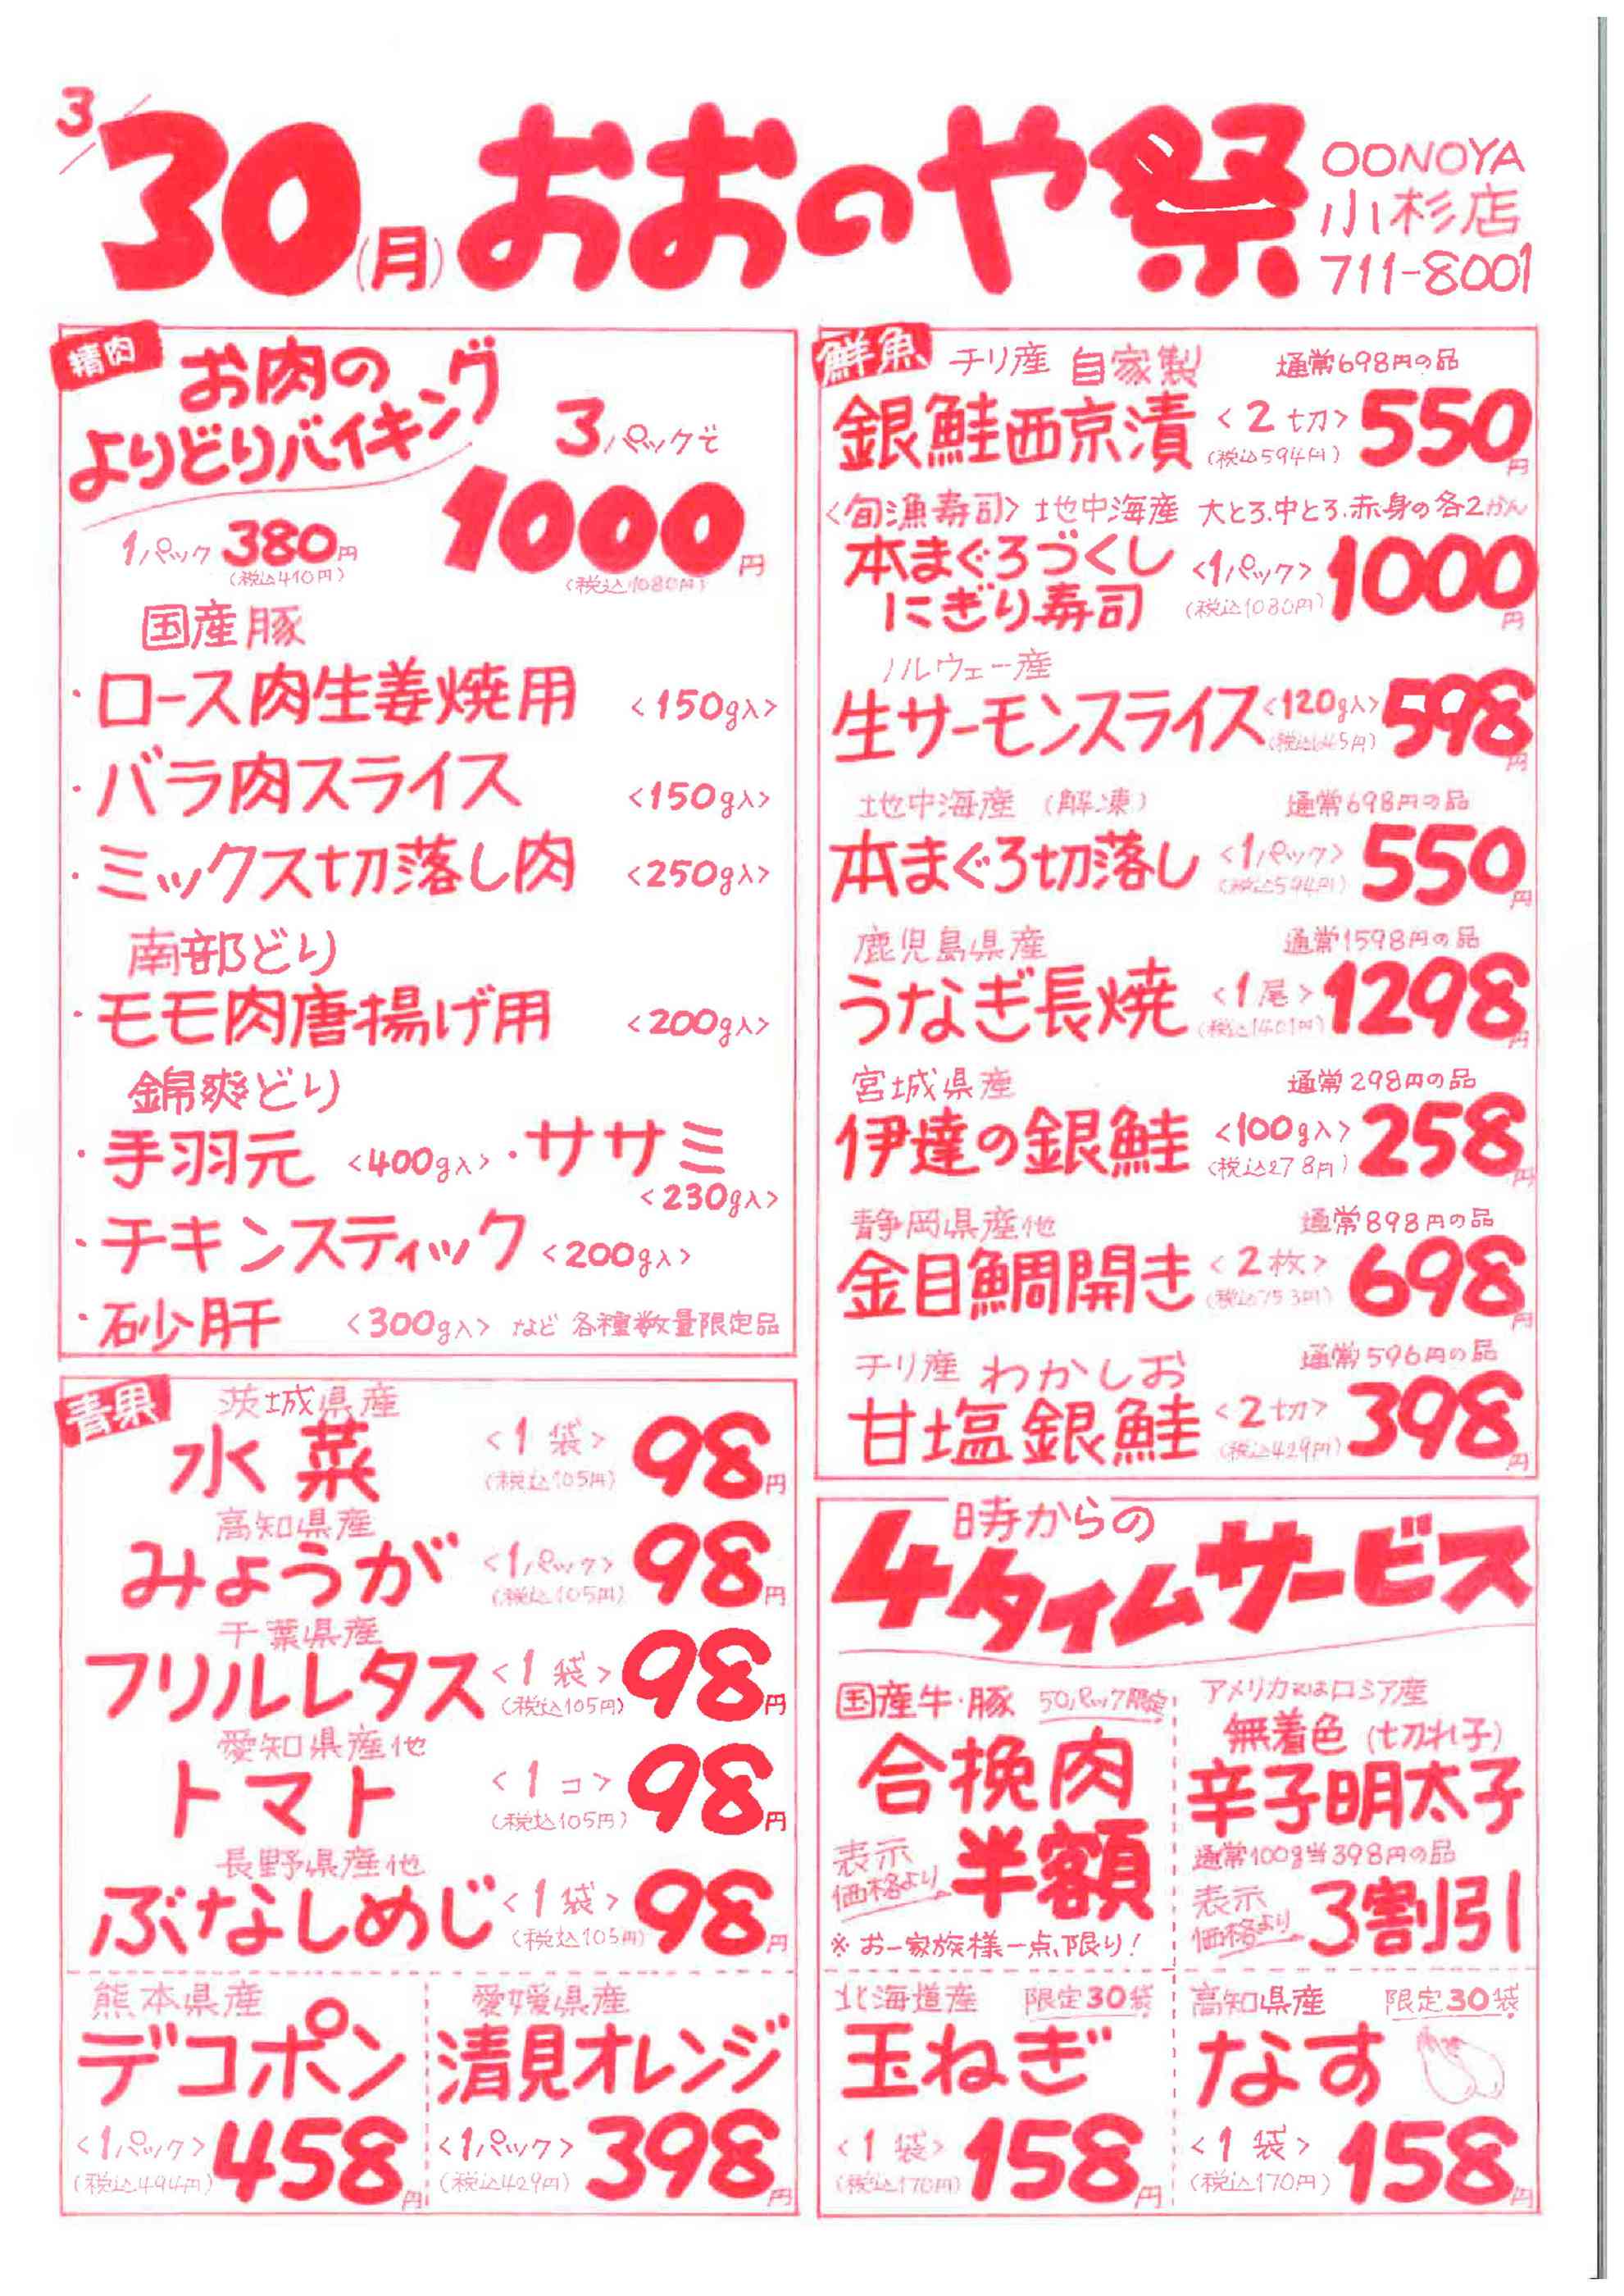 3/30(月)おおのや祭
OONOYA
小杉店
711-8001
精肉
お肉の
よりどりバイキング
3パックで
1000円
(税込1080円)
1パック380円
(税込410円)
国産豚
・ロース肉生姜焼用 <150g入>
・バラ肉スライス <150g入>
・ミックス切落し肉 <250g入>
南部どり
・モモ肉唐揚げ用 <200g入>
錦爽どり
・手羽元 <400g入>・ササミ
<230g入>
・チキンスティック <200g入>
・砂肝 <300g入> など 各種数量限定品
青果
茨城県産
水菜 <1袋> 98円
(税込105円)
高知県産
みょうが <1パック> 98円
(税込105円)
千葉県産
フリルレタス <1袋> 98円
(税込105円)
愛知県産他
トマト <1コ> 98円
(税込105円)
長野県産他
ぶなしめじ <1袋> 98円
(税込105円)
熊本県産
デコポン
<1パック> 458円
(税込494円)
愛媛県産
清見オレンジ
<1パック> 398円
(税込429円)
鮮魚
チリ産 自家製 通常698円の品
銀鮭西京漬 <2切> 550円
(税込594円)
<旬漁寿司> 地中海産 大とろ.中とろ.赤身の各2かん
本まぐろづくし
にぎり寿司 <1パック> 1000円
(税込1080円)
ノルウェー産
生サーモンスライス <120g入> 598円
(税込645円)
地中海産 (解凍) 通常698円の品
本まぐろ切落し <1パック> 550円
(税込594円)
鹿児島県産 通常1598円の品
うなぎ長焼 <1尾> 1298円
(税込1401円)
宮城県産 通常298円の品
伊達の銀鮭 <100g入> 258円
(税込278円)
静岡県産他 通常898円の品
金目鯛開き <2枚> 698円
(税込753円)
チリ産 わかしお 通常596円の品
甘塩銀鮭 <2切> 398円
(税込429円)
4時からの
タイムサービス
国産牛・豚 50パック限定
合挽肉
表示
価格より 半額
※お一家族様一点限り!
アメリカ又はロシア産
無着色 (切れ子)
辛子明太子
通常100g当398円の品
表示
価格より 3割引
北海道産 限定30袋
玉ねぎ
<1袋> 158円
(税込170円)
高知県産 限定30袋
なす
<1袋> 158円
(税込170円)